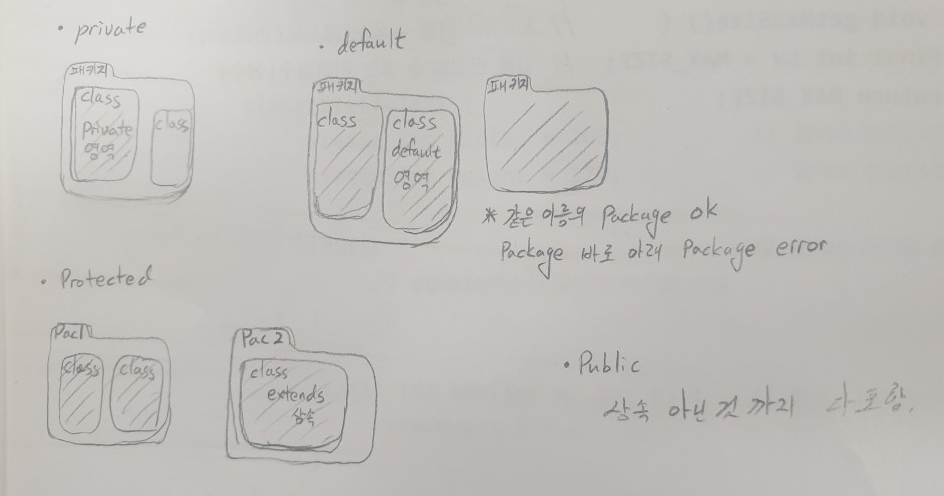 • private
패키지
class
Private
영역
class
• default
패키지
class
class
default
영역
패키지
* 같은 이름의 Package ok
Package 바로 아래 Package error
• Protected
Pac1
class
class
Pac 2
class
extends
상속
• Public
상속 아닌것 까지 다 포함.